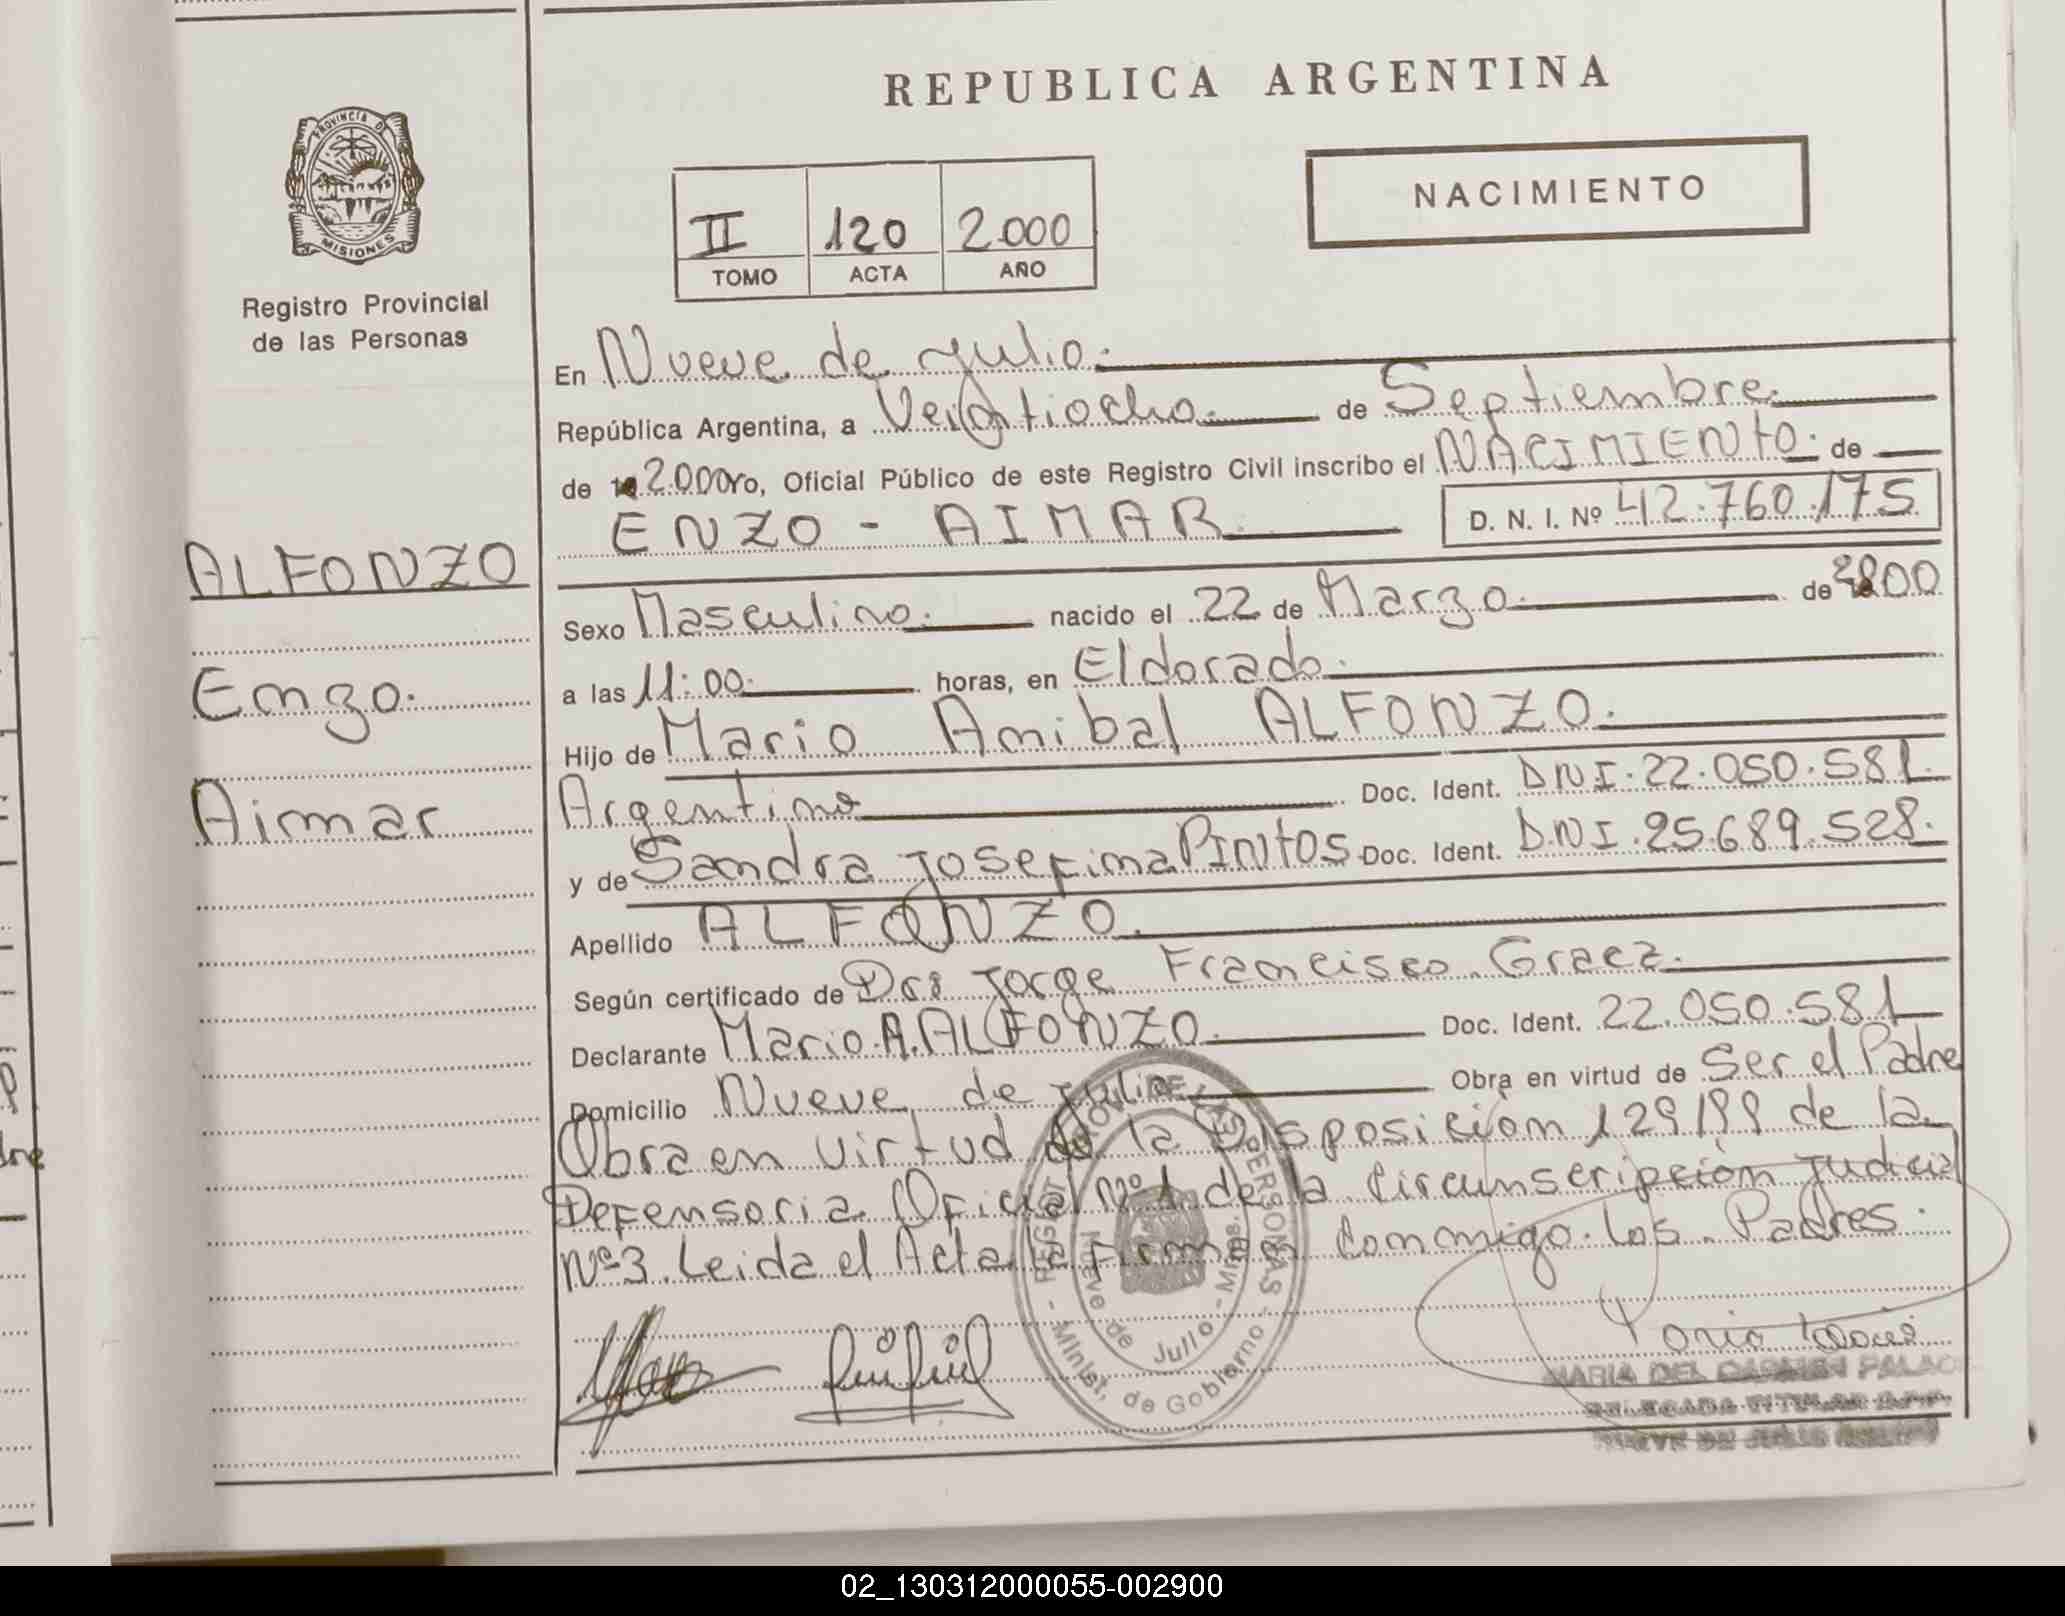 REPUBLICA ARGENTINA
PROVINCIA DE
MISIONES
Registro Provincial
de las Personas
II 120 2.000
TOMO ACTA AÑO
NACIMIENTO
ALFONZO
Enzo.
Aimar
En Nueve de Julio.
República Argentina, a Veintiocho. de Septiembre.
de 2.000 ro, Oficial Público de este Registro Civil inscribo el NACIMIENTO. de
ENZO - AIMAR. D. N. I. Nº 42.760.175
Sexo Masculino. nacido el 22 de Marzo. de 2000
a las 11:00. horas, en Eldorado.
Hijo de Mario Anibal ALFONZO.
Argentino Doc. Ident. DNI. 22.050.581.
y de Sandra Josefina PINTOS Doc. Ident. D.N.I. 25.689.528.
Apellido ALFONZO.
Según certificado de Jorge Francisco
Declarante Mario A. ALFONZO. Doc. Ident. 22.050.581
Domicilio Nueve de Julio Obra en virtud de Ser el Padre
Obra en virtud de la Disposición 129/99 de la
Defensoria Oficial Nº 1 de la Circunscripción Judicial
Nº 3. Leida el Acta la Firman Conmigo. Los Padres.
DE LAS PERSONAS
Nueve de Julio - Mnes.
Minist. de Gobierno
MARIA DEL CARMEN
02_130312000055-002900